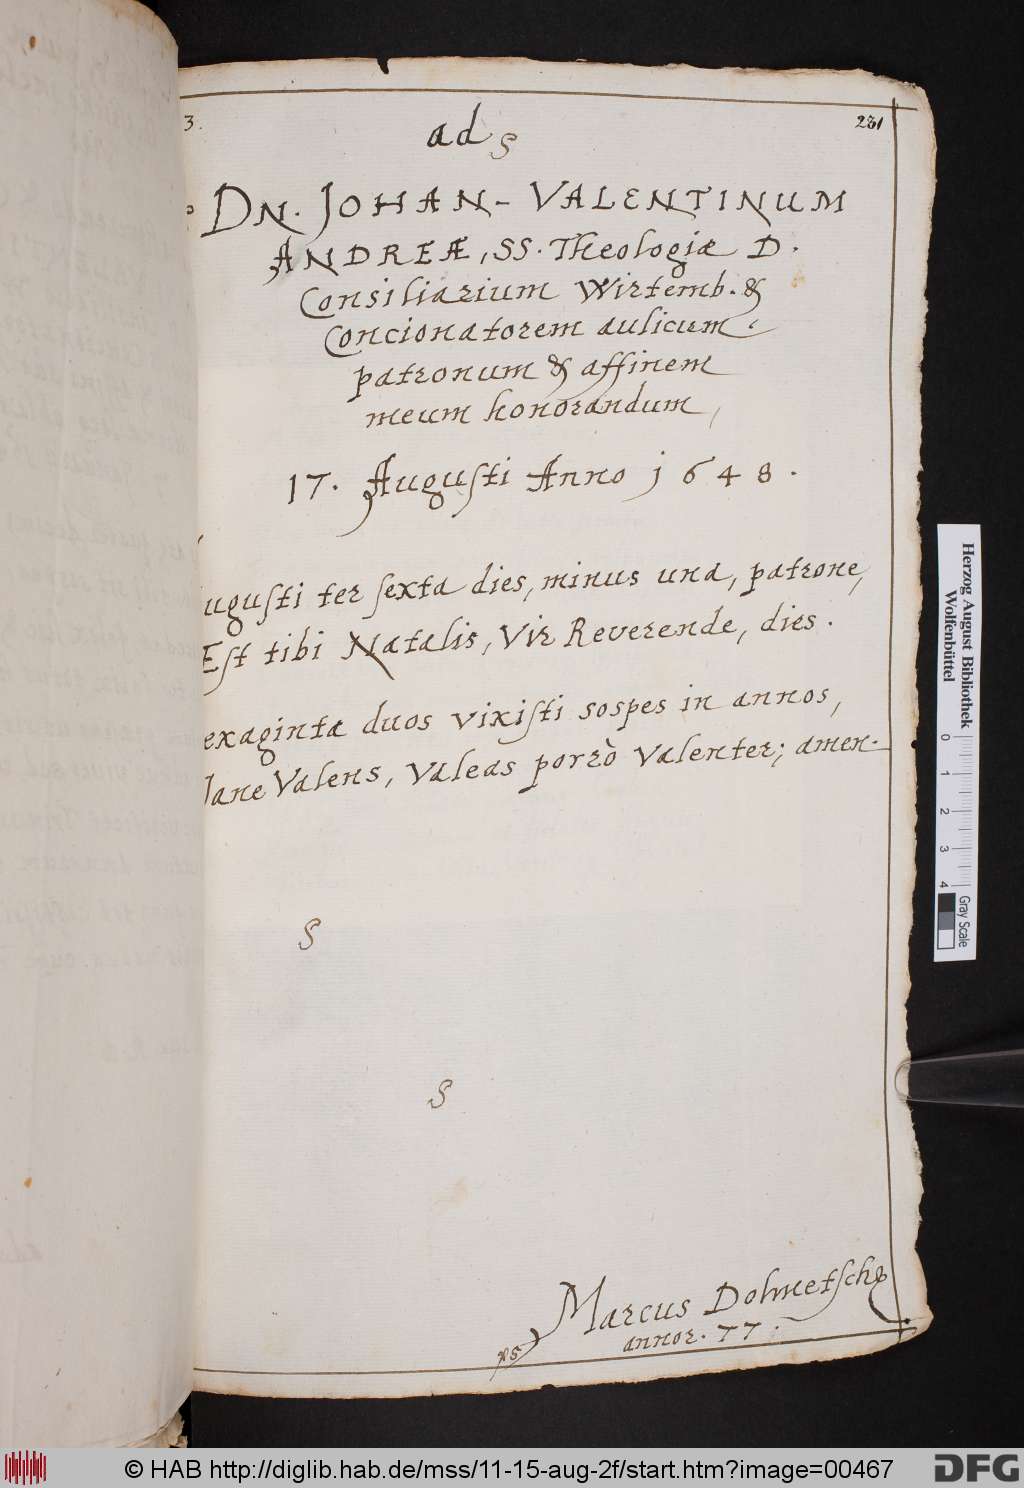 3.
231
ad
DN. JOHAN-VALENTINUM
ANDREÆ, SS. Theologiæ D.
Consiliarium Wirtemb. &
Concionatorem aulicum.
patronum & affinem
meum honorandum,
17. Augusti Anno 1648.
ugusti ter sexta dies, minus una, patrone,
Est tibi Natalis, Vir Reverende, dies.
exaginta duos vixisti sospes in annos,
Jane Valens, Valeas porrò Valenter; amen.
Marcus Dolmetsch
annor. 77.
Herzog August Bibliothek
Wolfenbüttel
0 1 2 3 4
Gray Scale
© HAB http://diglib.hab.de/mss/11-15-aug-2f/start.htm?image=00467
DFG